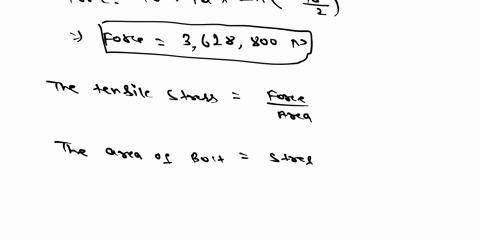 ⇒ Force = 3,628,800 N
The tensile stress = Force / Area
The area of Bolt = stres